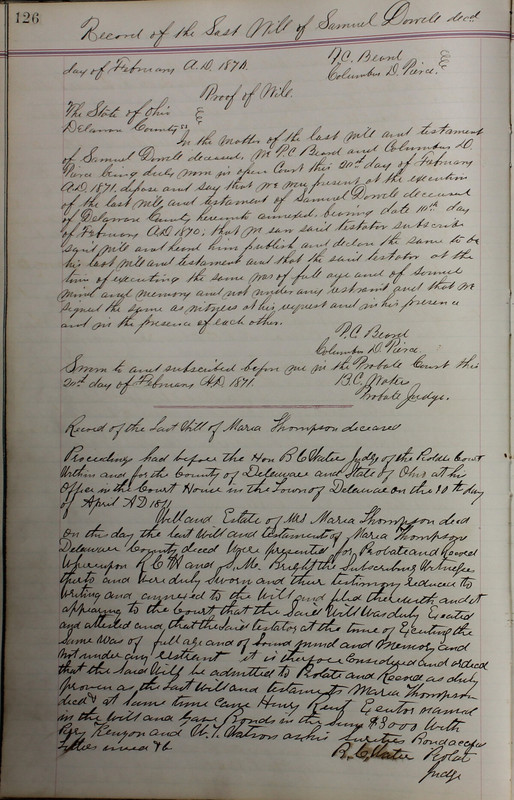 126
Record of the Last Will of Samuel Dowell decd
day of February A.D. 1870.
P.C. Beard
Columbus D. Pierce.
Proof of Will.
The State of Ohio
Delaware County ss
In the matter of the last will and testament
of Samuel Dowell deceased. We P.C. Beard and Columbus D.
Pierce being duly sworn in open Court this 20th day of February
A.D. 1871, depose and say that we were present at the execution
of the last will and testament of Samuel Dowell deceased
of Delaware County hereunto annexed, bearing date 11th day
of February A.D. 1870; that we saw said testator subscribe
said will and heard him publish and declare the same to be
his last will and testament and that the said testator at the
time of executing the same was of full age and of sound
mind and memory and not under any restraint and that we
signed the same as witness at his request and in his presence
and in the presence of each other.
P.C. Beard
Columbus D. Pierce.
Sworn to and subscribed before me in the Probate Court this
20th day of February A.D. 1871.
B.C. Waters
Probate Judge.
Record of the Last Will of Maria Thompson deceased
Proceedings had before the Hon B C Waters Judge of the Probate Court
Within and for the County of Delaware and State of Ohio at his
Office in the Court House in the Town of Delaware on the 10th day
of April AD 1871
Will and Estate of Mrs Maria Thompson decd
On this day the last Will and testament of Maria Thompson
Delaware County decd were presented for Probate and Record
Whereupon and S. M. Bright the Subscribing Witnesses
thereto and were duly Sworn and their testimony reduced to
writing and annexed to the Will and filed therewith and it
appearing to the Court that the Said Will was duly Executed
and attested and that the Said testator at the time of Executing the
Same Was of full age and of Sound mind and Memory and
not under any restraint it is therefore Considered and ordered
that the Said Will be admitted to Probate and Record as duly
proven as the Last Will and testament of Maria Thompson
decd & at same time Came Henry Executor named
in the Will and gave Bonds in the Sum $3000 With
Kenyon and W. T. Watson as his Sureties Bond accepted
Letters issued &c
B. C. Waters Probate
Judge